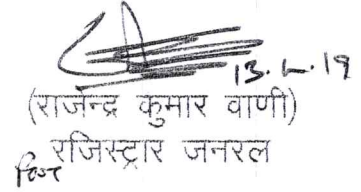 13.6.19
(राजेन्द्र कुमार वाणी)
रजिस्ट्रार जनरल